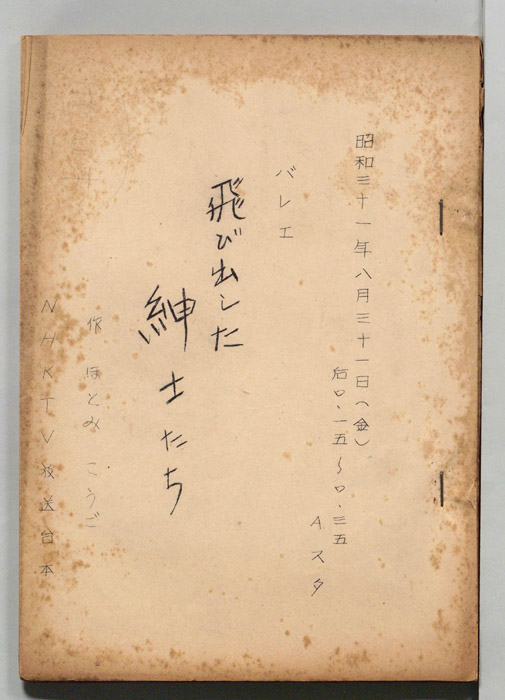 昭和三十一年八月三十一日(金)
后0.一五〜0.三五
Aスタ
バレエ
飛び出した
紳士たち
作 ほとみ こうご
NHKTV放送台本